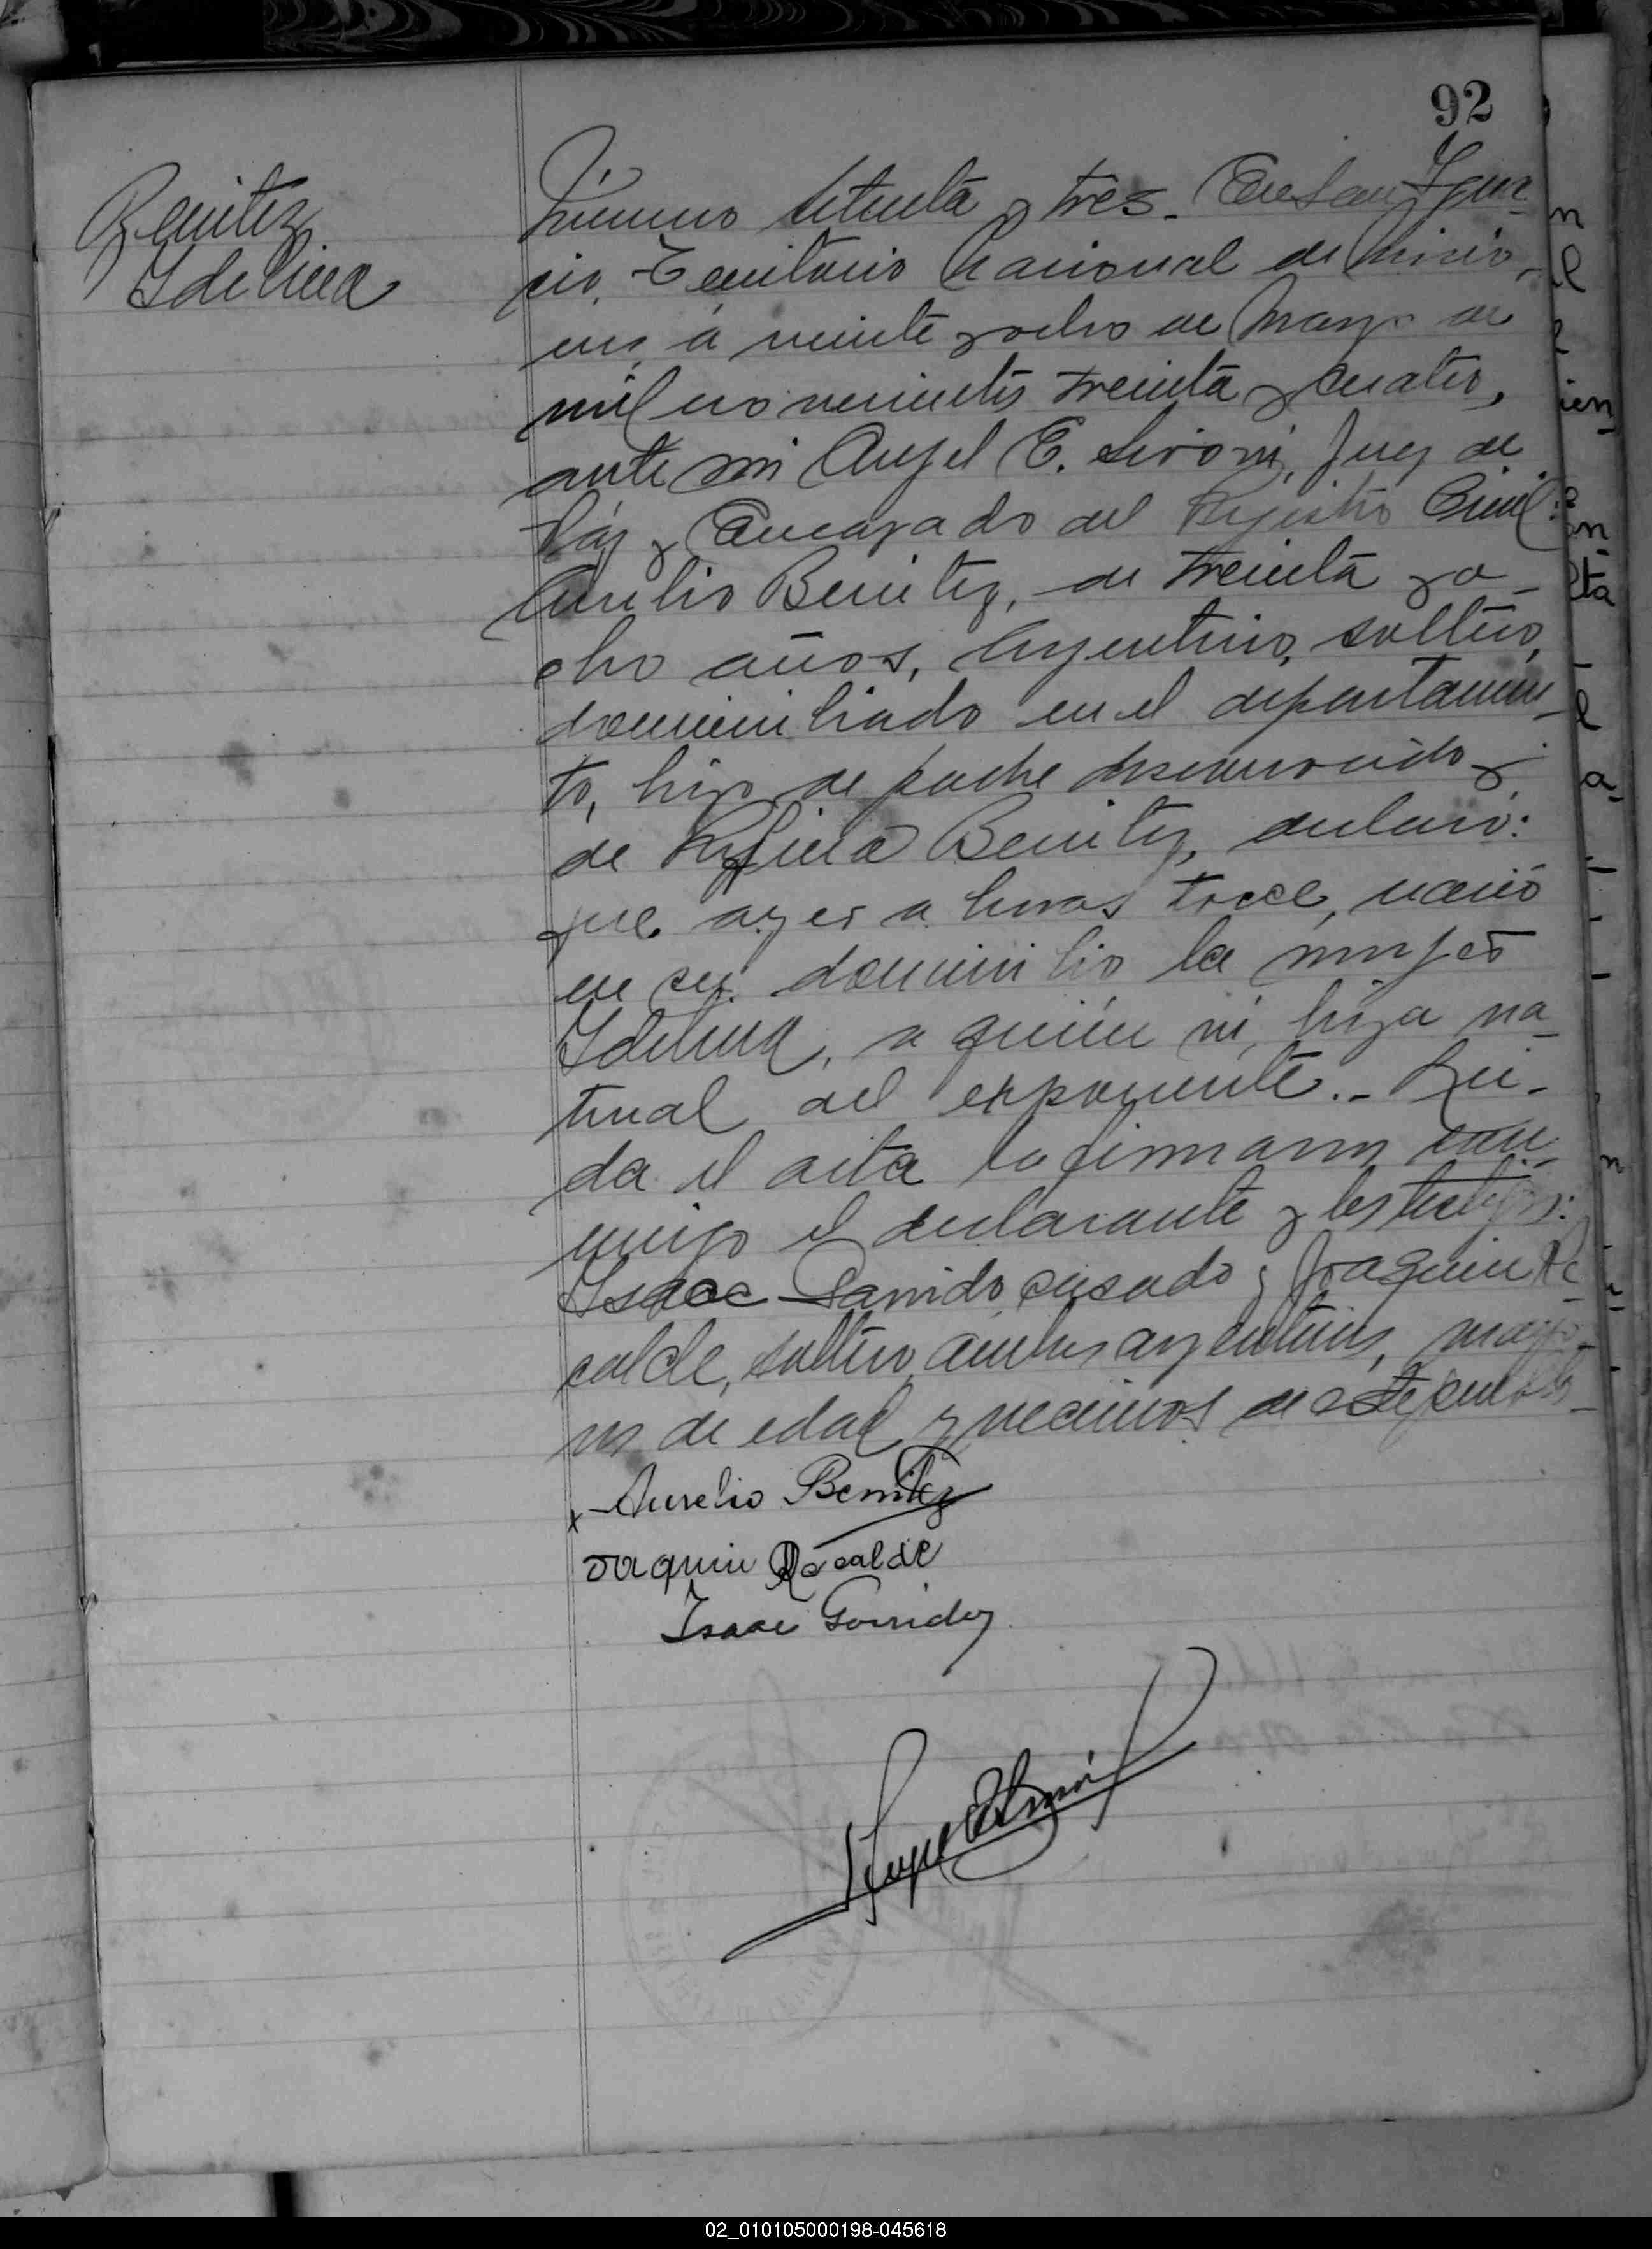 92
Benitez
Idelina
Número setenta y tres. En San Igna-
cio, Territorio Nacional de Misio-
nes, a veinte y ocho de Marzo de
mil novecientos treinta y cuatro,
ante mi Angel E. Sironi, Juez de
Páz y Encargado del Registro Civil:
Aurelio Benitez, de treinta y o-
cho años, Argentino, soltero,
domiciliado en el departamen-
to, hijo de padre desconocido y
de Rufina Benitez, declaró:
que ayer a horas trece, nació
en su domicilio la mujer
Idelina, a quién ví, hija na-
tural del exponente.- Leí-
da el acta la firmaron con-
migo el declarante y los testigos:
Isaac Garrido, casado y Joaquin Re-
calde, soltero, ambos argentinos, mayo-
res de edad y vecinos de este pueblo-
x Aurelio Benitez
Joaquin Recalde
Isaac Garrido
02_010105000198-045618